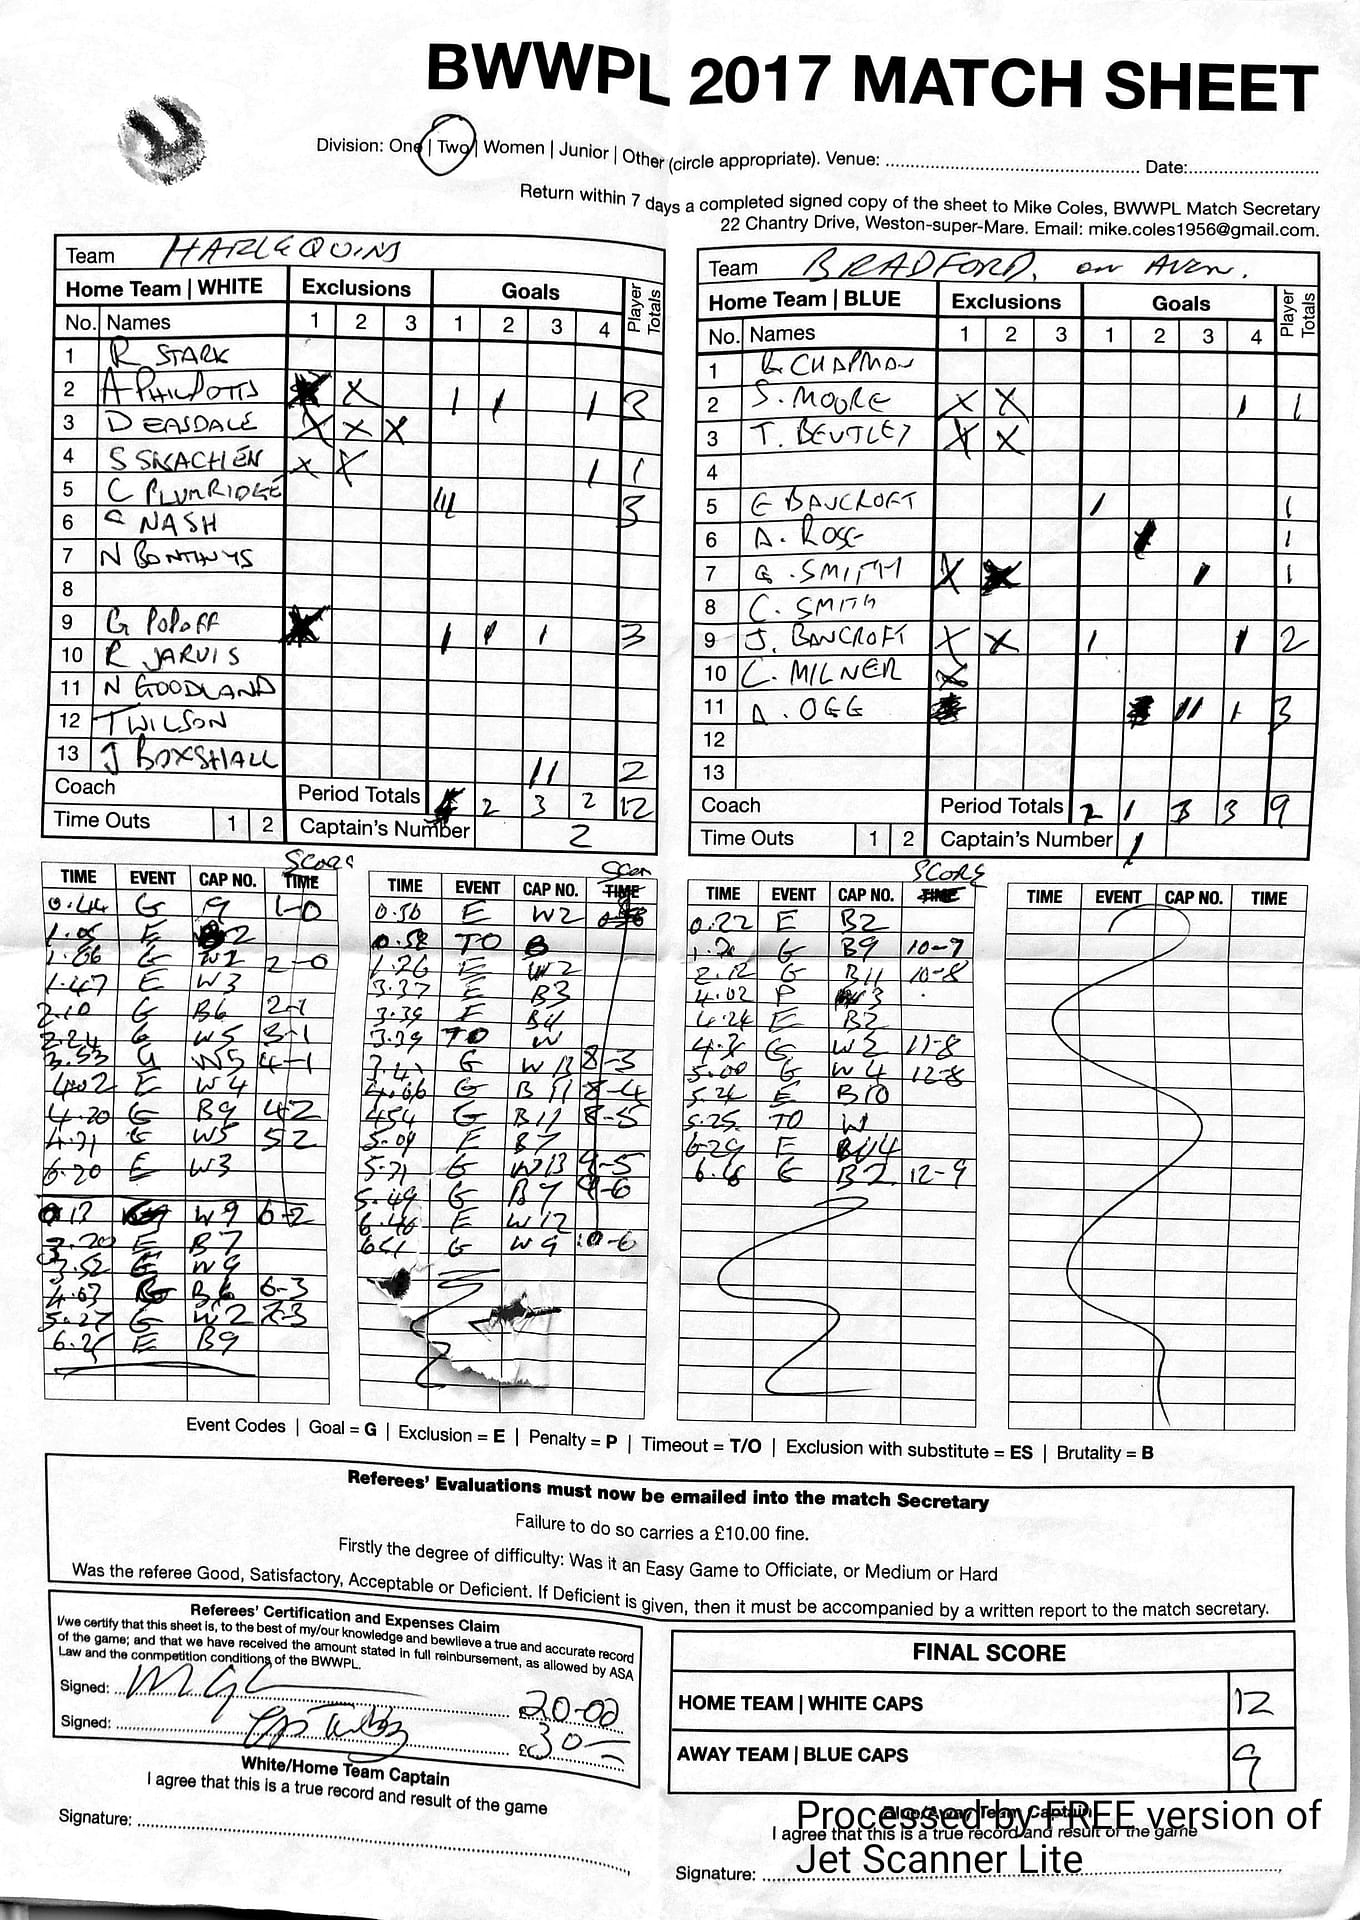 BWWPL 2017 MATCH SHEET
Division: One | Two | Women | Junior | Other (circle appropriate). Venue: Date:
Return within 7 days a completed signed copy of the sheet to Mike Coles, BWWPL Match Secretary
22 Chantry Drive, Weston-super-Mare. Email: mike.coles1956@gmail.com.
Team HARLEQUINS
Home Team | WHITE Exclusions Goals Player Totals
No. Names 1 2 3 1 2 3 4
1 R STARK
2 A PHILPOTTS X X 1 1 1 3
3 D EASDALE X X X
4 S X X 1 1
5 C PLUMRIDGE 111 3
6 NASH
7 N BONTHUYS
8
9 G POPOFF X 1 1 1 3
10 R JARVIS
11 N GOODLAND
12 T WILSON
13 J BOXSHALL 11 2
Coach Period Totals 2 3 2 12
Time Outs 1 2 Captain's Number 2
Team BRADFORD. on AVON.
Home Team | BLUE Exclusions Goals Player Totals
No. Names 1 2 3 1 2 3 4
1 CHAPMAN
2 S. MOORE X X 1 1
3 T. BEUTLEY X X
4
5 E BANCROFT 1 1
6 A. ROSE 1 1
7 G. SMITH X X 1 1
8 C. SMITH
9 J. BANCROFT X X 1 1 2
10 C. MILNER X
11 A. OGG 11 1 3
12
13
Coach Period Totals 2 1 3 3 9
Time Outs 1 2 Captain's Number 1
SCORE
TIME EVENT CAP NO. TIME
0.44 G 9 1-0
1.05 E 2
1.06 G W2 2-0
1.47 E W3
2.10 G B6 2-1
2.24 G W5 3-1
3.53 G W5 4-1
4.02 E W4
4.20 G B9 4-2
4.31 G W5 5-2
6.20 E W3
0.13 W9 6-2
3.20 E B7
3.52 E W9
4.03 G B6 6-3
5.27 G W2 7-3
E B9
TIME EVENT CAP NO. TIME
0.56 E W2
0.58 TO B
1.26 E W2
3.37 E B3
3.39 E
3.39 TO W
3.41 G W13 8-3
4.06 G B11 8-4
4.54 G B11 8-5
5.09 E B7
5.31 G W13 9-5
5.49 G B7 9-6
6.46 E W12
6.51 G W9 10-6
SCORE
TIME EVENT CAP NO. TIME
0.22 E B2
1.20 G B9 10-7
2.12 G B11 10-8
4.02 P 3
4.24 E B2
G W2 11-8
5.00 G W4 12-8
5.24 E B10
5.25 TO W
6.29 E
G B2 12-9
TIME EVENT CAP NO. TIME
Event Codes | Goal = G | Exclusion = E | Penalty = P | Timeout = T/O | Exclusion with substitute = ES | Brutality = B
Referees' Evaluations must now be emailed into the match Secretary
Failure to do so carries a £10.00 fine.
Firstly the degree of difficulty: Was it an Easy Game to Officiate, or Medium or Hard
Was the referee Good, Satisfactory, Acceptable or Deficient. If Deficient is given, then it must be accompanied by a written report to the match secretary.
Referees' Certification and Expenses Claim
I/we certify that this sheet is, to the best of my/our knowledge and bewlieve a true and accurate record
of the game; and that we have received the amount stated in full reinbursement, as allowed by ASA
Law and the conmpetition conditions of the BWWPL.
Signed: £20-00
Signed: £30-
White/Home Team Captain
I agree that this is a true record and result of the game
Signature:
FINAL SCORE
HOME TEAM | WHITE CAPS 12
AWAY TEAM | BLUE CAPS 9
Blue/Away Team Captain
I agree that this is a true record and result of the game
Signature:
Processed by FREE version of
Jet Scanner Lite